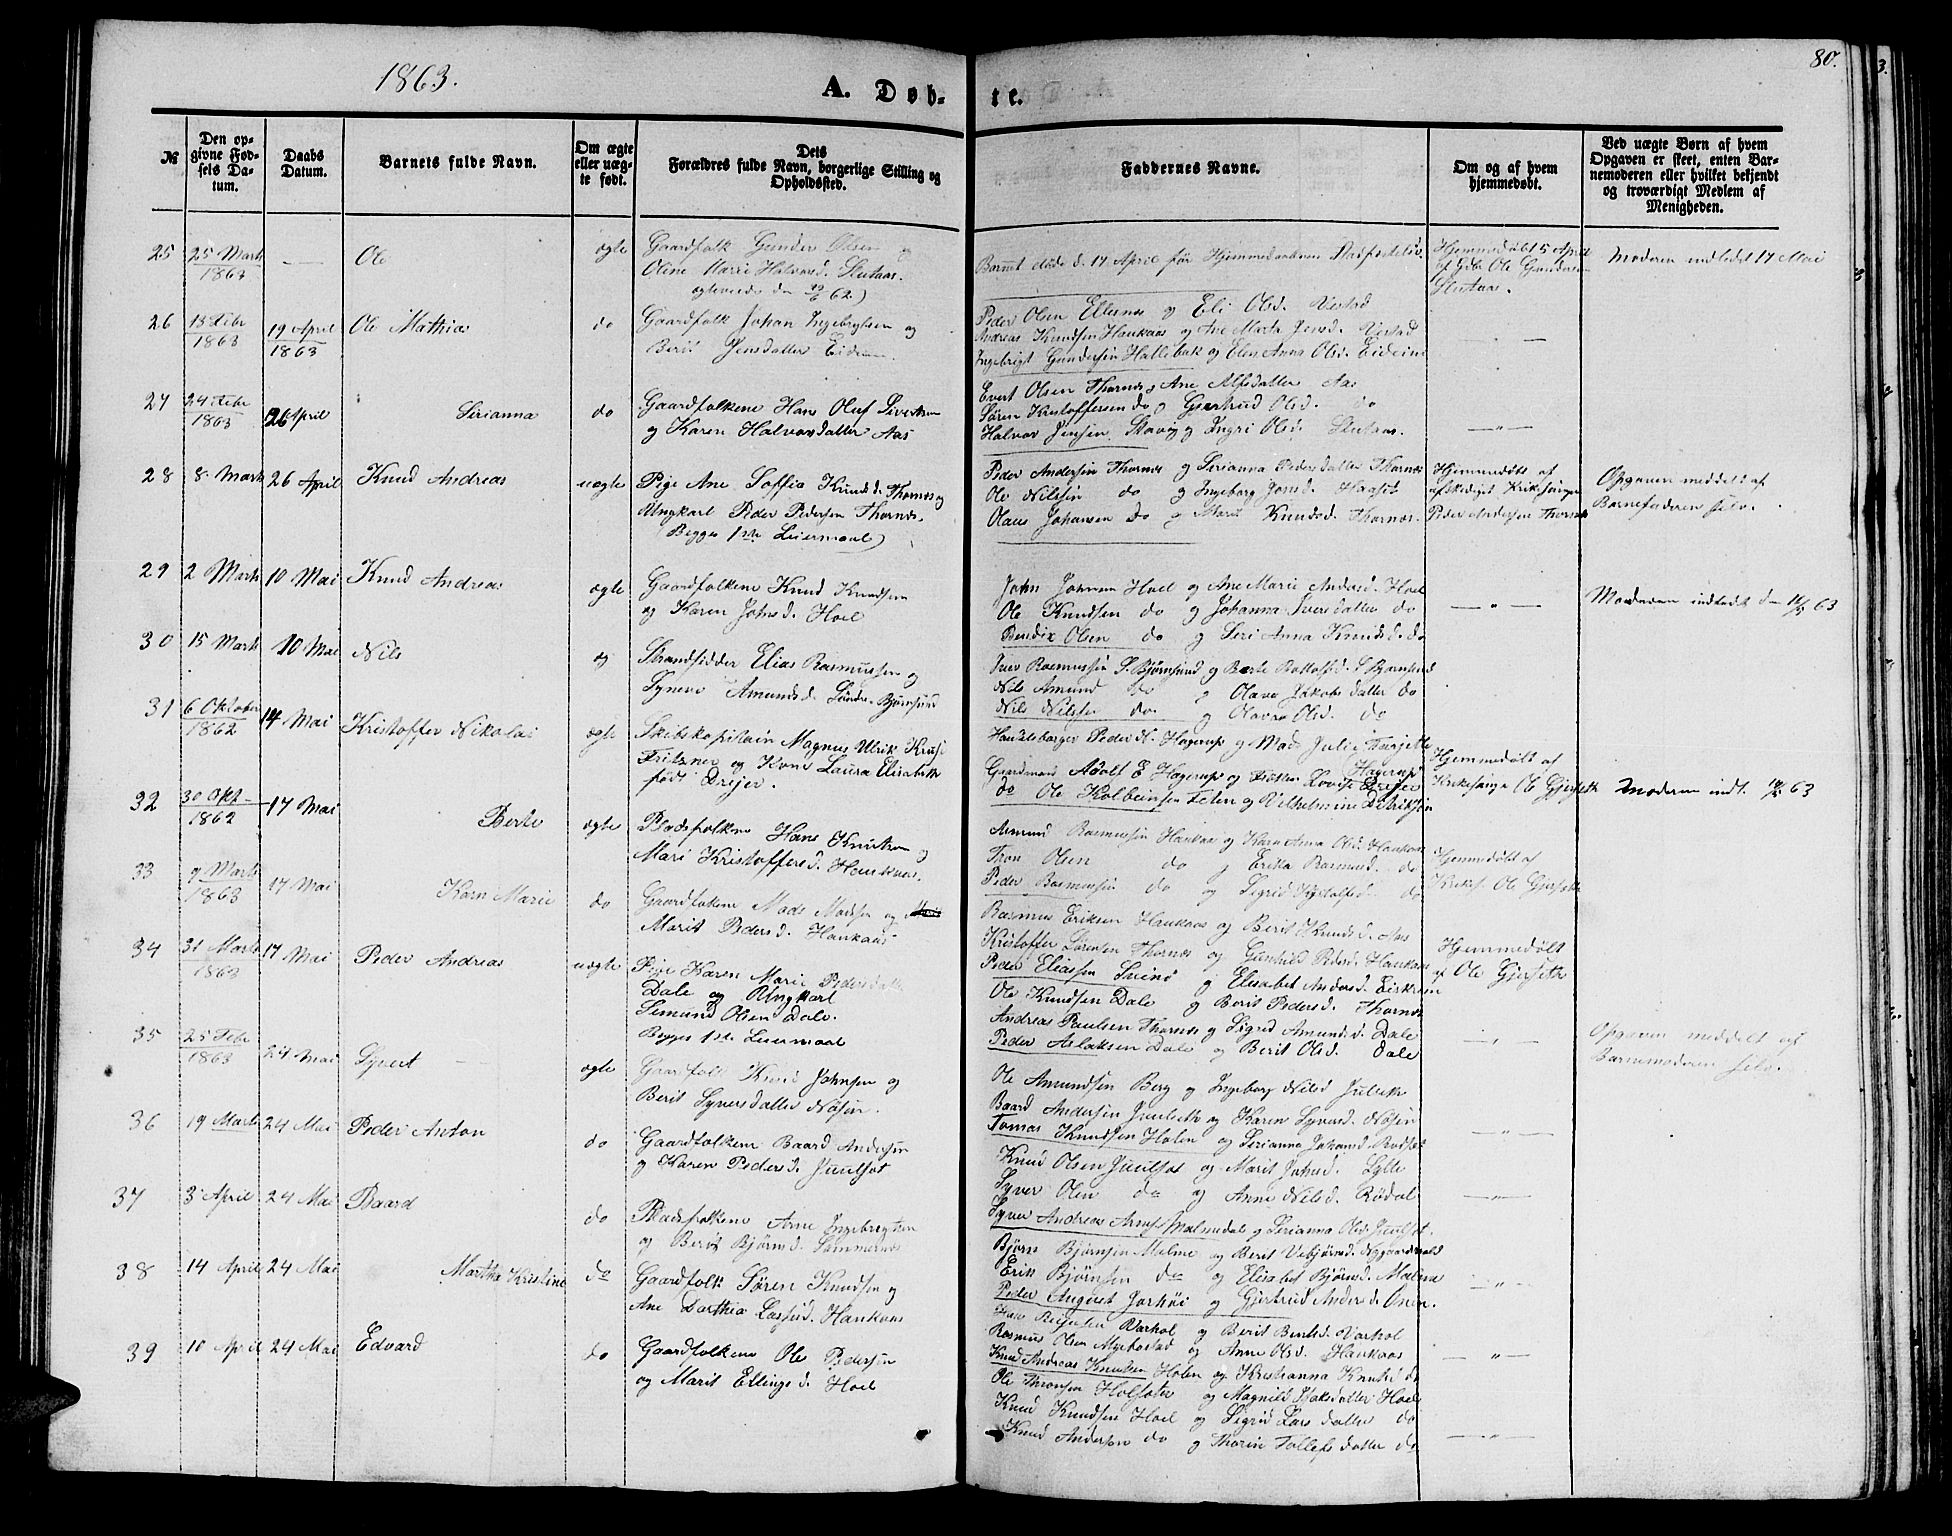 1863.
A. Døb-
te.
80.
№
Den op-
givne Fød-
sels Da-
tum.
Daabs
Datum.
Barnets fulde Navn.
Om ægte
eller uæg-
te født.
Dets
Forældres fulde Navn, borgerlige Stilling og
Opholdssted.
Faddernes Navne.
Om og af hvem
hjemmedøbt.
Ved uægte Børn af hvem
Opgaven er skeet, enten Bar-
nemoderen eller hvilket bekjendt
og troværdigt Medlem af
Menigheden.
25 25 Marts 1863 — Ole ægte
Gaardfolk Gunder Olsen og
Oline Marie Halvorsd. Slutaas.
Barnet døde d. 17 April før Hjemmedaaben Stadfæstelse
Hjemmedøbt 5 April
af Gdb. Ole Gundersen
Slutaas.
Moderen indledet 17 Mai
26 13 Febr 1863 19 April 1863 Ole Mathias do
Gaardfolk Johan Ingebrigtsen og
Berit Jensdatter Eidem
Peder Olsen Ellesnes og Eli Olsd. Vestad
Andreas Knudsen Haukaas og Ane Marta Jensd. Vestad
Ingebrigt Gundersen Hallebak og Elen Anna Olsd. Eideim
27 24 Febr 1863 26 April Serianna do
Gaardfolkene Hans Oluf Sivertsen
og Karen Halvorsdatter Aas
Evert Olsen Thornes Ane Alfsdatter Aas
Søren Kristoffersen do og Gjertrud Olsd. do
Halvor Jensen Stavig og Ingri Olsd. Slutaas.
28 8 Marts 26 April Knud Andreas uægte
Pige Ane Soffia Knudsd. Thornes og
Ungkarl Peder Pedersen Thornes.
(Begges 1ste Leiermaal)
Peder Andersen Thornes og Serianna Pedersdatter Thornes
Ole Nilssen do og Ingeborg Jonsd. Haaset
Olaus Johansen do og Marit Knudsd. Thornes.
Hjemmedøbt af
afskediget Kirkesanger
Peder Andersen Thornes
Opgaven meddelt af
Barnefaderen selv.
29 2 Marts 10 Mai Knud Andreas ægte
Gaardfolkene Knud Knudsen
og Karen Johnsd. Hoel
John Johnsen Hoel og Ane Marie Andersd. Hoel
Ole Knudsen do og Johanna Iversdatter do
Bendix Olsen do og Seri Anna Knudsd. do
Moderen indledt d 10/5 63
30 15 Marts 10 Mai Nils æg
Strandsidder Elias Rasmussen og
Synevø Amundsd. Søndre Bjørnsund
Iver Rasmussen S. Bjørnsund og Berte Rottofsd. S Bjørnsund
Nils Amund do og Olava Jakobsdatter do
Nils Nilssen do og Olavra Olsd. do
31 6 Oktober 1862 14 Mai Kristoffer Nikolai ægte
Skibskapitain Magnus Ulrik Kruse
Fritzner og Kone Laura Elisabeth
født Dreyer.
Handelsborger Peder H. Hagerup og Mad. Julie Hagerup
Gaardmand Adolf E Hagerup og Frøken Lovise Dreyer
do Ole Kolbeinsen Eelen og Vilhelmine Didriksen
Hjemmedøbt af
Kirkesanger Ole Gjerseth
Moderen indl. 63
32 30 Okt 1862 17 Mai Berte ægte
Pladsfolkene Hans Knutsen og
Mari Kristoffersd. Haukaas.
Amund Rasmussen Haukaas og Karn Anna Olsd. Haukaas
Tron Olsen do og Erika Rasmusd. do
Peder Rasmussen do og Sigrid do
Hjemmedøbt af
Kirkes. Ole Gjerseth
33 9 Marts 1863 17 Mai Karn Marie do
Gaardfolkene Mads Madsen og
Marit Pedersd. Haukaas
Rasmus Eriksen Haukaas og Berit Knudsd. Aas
Kristoffer Sørensen Thornes og Gunhild Pedersd. Haukaas
Peder Eliassen og Elisabet Andersd. Eiskrem
Hjemmedøbt
af Ole Gjerseth
34 31 Marts 1863 17 Mai Peder Andreas uægte
Pige Karen Marie Pedersdatter
Dale og Ungkarl
Semund Olsen Dale.
Begges 1ste Leiermaal
Ole Knudsen Dale og Berit Pedersd. Thornes
Andreas Paulsen Thornes og Sigrid Amundsd. Dale
Peder Aslaksen Dale og Berit Olsd. Dale
Opgaven meddelt af
Barnemoderen selv.
35 25 Febr 1863 24 Mai Syvert ægte
Gaardfolk Knud Johnsen og
Berit Syversdatter Nøsen.
Ole Amundsen Berg og Ingeborg Nilsd Juulseth
Baard Andersen Juulseth og Karen Syversd. Nøsen
Tomas Knudsen Holen og Serianna Johansd.
36 19 Marts 24 Mai Peder Anton do
Gaardfolkene Baard Andersen
og Karen Pedersd. Juulset
Knud Olsen Juulset og Marit Johnsd. Lylte
Syver Olsen do og Anne Nilsd. Rødal
Syver Andreas Malmedal og Serianna Olsd. Juulset.
37 3 April 24 Mai Baard do
Pladsfolkene Arne Ingebregtsen
og Berit Bjørnsd. Sommernes
Bjørn Bjørnsen Malme og Berit Vebjørnsd. Nygaardsvold
Erik Bjørnsen do og Elisabet Bjørnsd. Malme
Peder August Jarhøi og Gjertrud Andersd. Onen.
38 14 April 24 Mai Martha Kristine do
Gaardfolk Søren Knudsen og
Ane Dorthea Lassesd. Haukaas
Varhol og Berit Bentsd. Varhol
Rasmus Olsen Myrbostad og Anne Olsd. Haukaas
Knud Andreas Knudsen Holen og Kristianna Knutsd do
39 10 April 24 Mai Edvard do
Gaardfolkene Ole Pedersen
og Marit Ellingsd. Hoel
Ole Thronsen Holsæter og Magnild Isaksdatter Hoel
Knud Knudsen Hoel og Sigrid Larsdatter do
Knud Andersen do og Thorine Tollefsdatter do